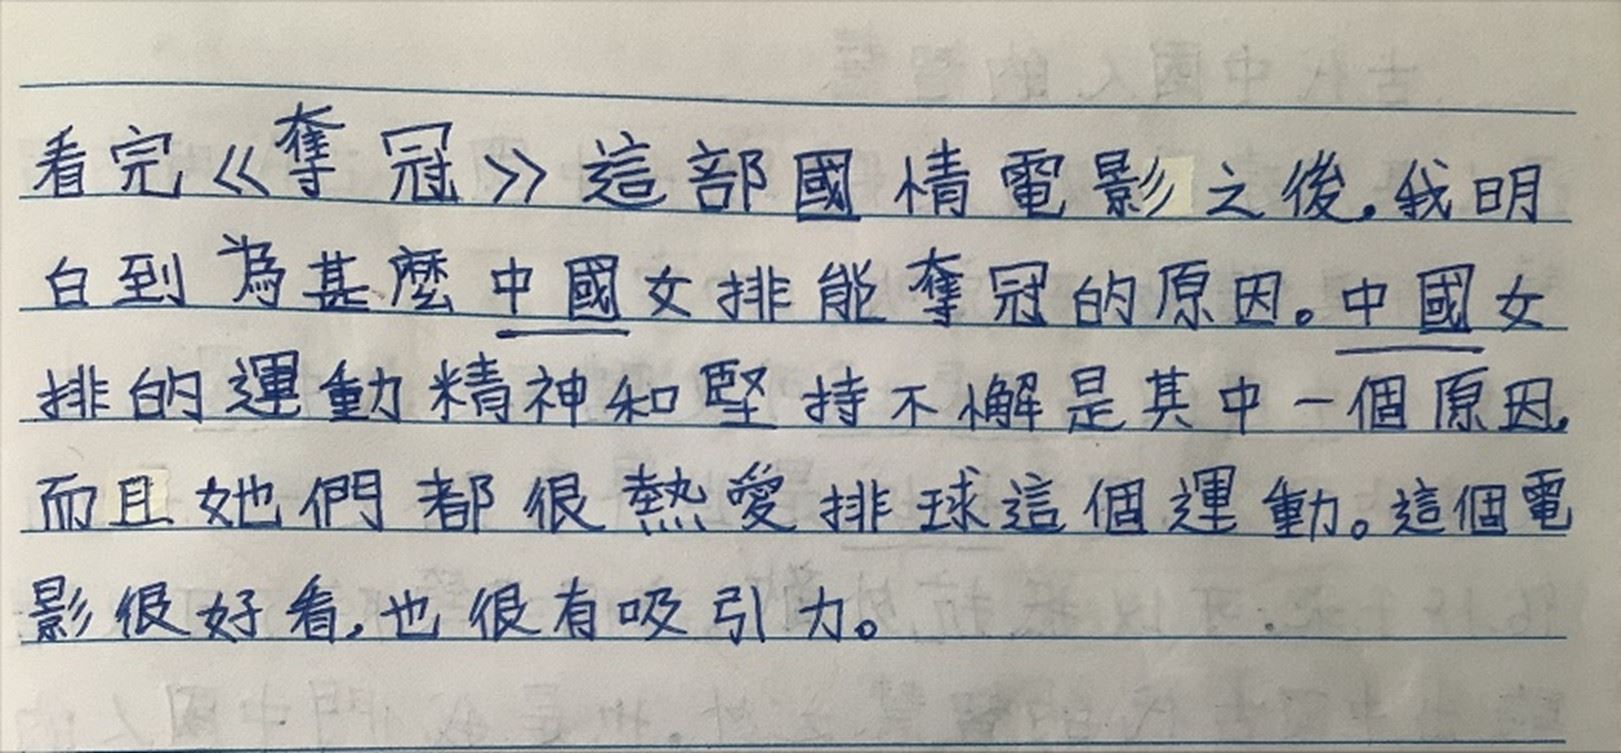 看完《奪冠》這部國情電影之後，我明
白到為甚麼中國女排能奪冠的原因。中國女
排的運動精神和堅持不懈是其中一個原因，
而且她們都很熱愛排球這個運動。這個電
影很好看，也很有吸引力。